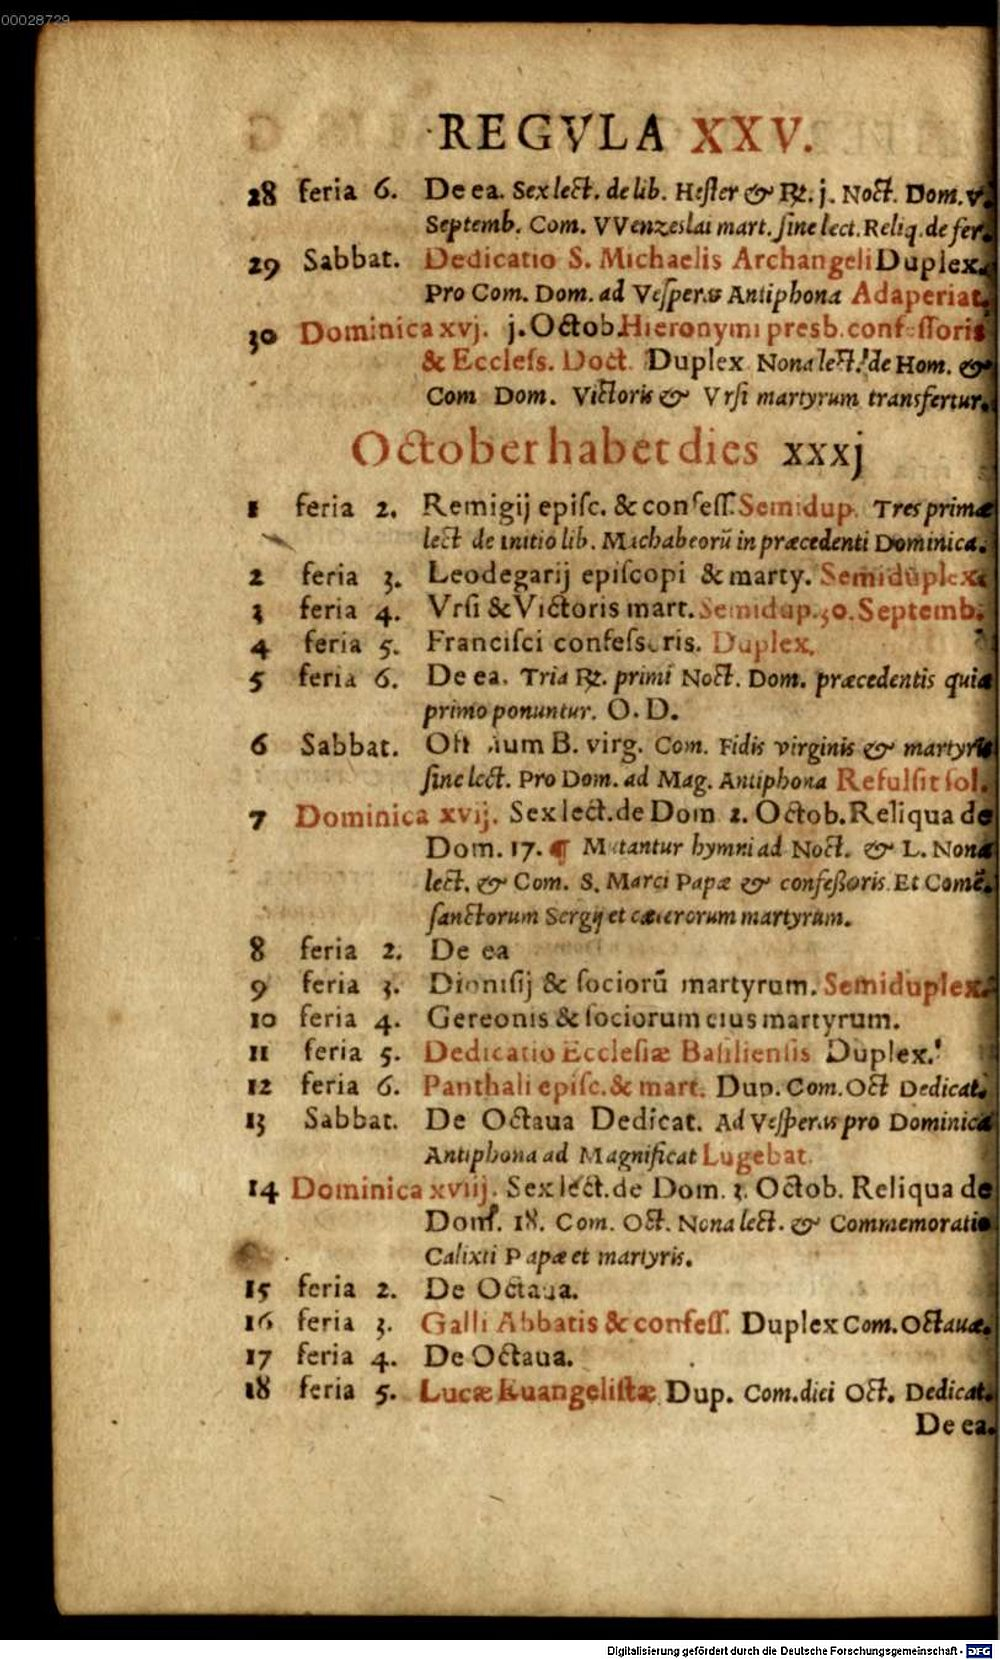 00028729
REGVLA XXV.
28 feria 6. De ea. Sex lect. de lib. Hester & ℟. j. Noct. Dom. v.
Septemb. Com. VVenzeslai mart. sine lect. Reliq. de fer.
29 Sabbat. Dedicatio S. Michaelis Archangeli Duplex.
Pro Com. Dom. ad Vesperas Antiphona Adaperiat.
30 Dominica xvj. j. Octob. Hieronymi presb. confessoris
& Eccless. Doct. Duplex Nona lect. de Hom. &
Com Dom. Victoris & Vrsi martyrum transfertur.
October habet dies xxxj
1 feria 2. Remigij episc. & confess. Semidup. Tres primæ
lect de initio lib. Machabeorū in præcedenti Dominica.
2 feria 3. Leodegarij episcopi & marty. Semiduplex.
3 feria 4. Vrsi & Victoris mart. Semidup. 30. Septemb.
4 feria 5. Francisci confessoris. Duplex.
5 feria 6. De ea. Tria ℟. primi Noct. Dom. præcedentis quia
primo ponuntur. O. D.
6 Sabbat. Officium B. virg. Com. Fidis virginis & martyris
sine lect. Pro Dom. ad Mag. Antiphona Refulsit sol.
7 Dominica xvij. Sex lect. de Dom 2. Octob. Reliqua de
Dom. 17. ¶ Mutantur hymni ad Noct. & L. Nona
lect. & Com. S. Marci Papæ & confeßoris. Et Comē.
sanctorum Sergij et cæterorum martyrum.
8 feria 2. De ea
9 feria 3. Dionisij & sociorū martyrum. Semiduplex.
10 feria 4. Gereonis & sociorum eius martyrum.
11 feria 5. Dedicatio Ecclesiæ Basiliensis Duplex.
12 feria 6. Panthali episc. & mart. Dup. Com. Oct Dedicat.
13 Sabbat. De Octaua Dedicat. Ad Vesperas pro Dominica
Antiphona ad Magnificat Lugebat.
14 Dominica xviij. Sex lect. de Dom. 3. Octob. Reliqua de
Dom. 18. Com. Oct. Nona lect. & Commemoratio
Calixti Papæ et martyris.
15 feria 2. De Octaua.
16 feria 3. Galli Abbatis & confess. Duplex Com. Octauæ.
17 feria 4. De Octaua.
18 feria 5. Lucæ Euangelistæ Dup. Com. diei Oct. Dedicat.
De ea.
Digitalisierung gefördert durch die Deutsche Forschungsgemeinschaft - DFG